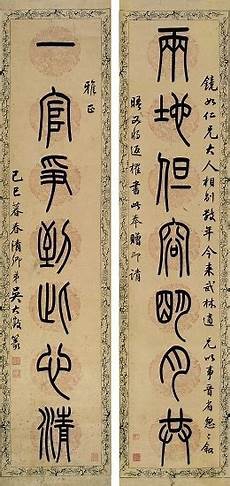 鏡如仁兄大人相別數年今來武林適 兄以事晉省怱怱一叙
兩地但容明月共
瞬又將返櫂書此奉贈即請
雅正
一官爭到此心清
己巳暮春清卿弟吳大澂篆